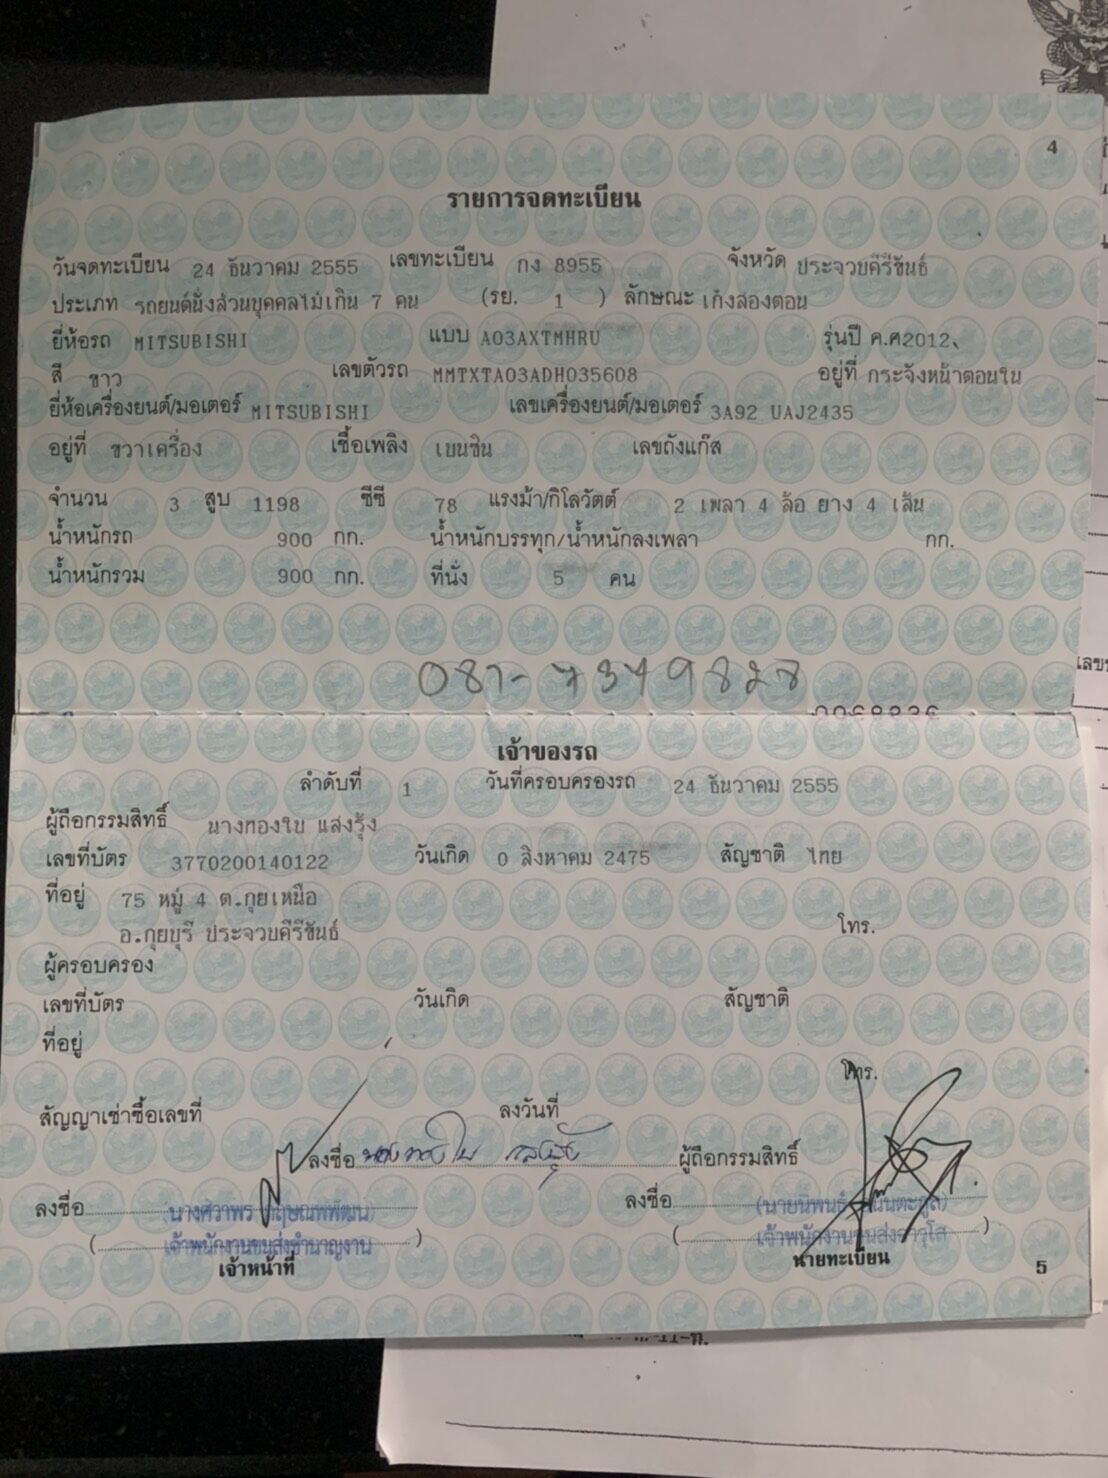 4
รายการจดทะเบียน
วันจดทะเบียน 24 ธันวาคม 2555 เลขทะเบียน กง 8955 จังหวัด ประจวบคีรีขันธ์
ประเภท รถยนต์นั่งส่วนบุคคลไม่เกิน 7 คน (รย. 1 ) ลักษณะ เก๋งสองตอน
ยี่ห้อรถ MITSUBISHI แบบ A03AXTMHRU รุ่นปี ค.ศ2012
สี ขาว เลขตัวรถ MMTXTA03ADH035608 อยู่ที่ กระจังหน้าตอนใน
ยี่ห้อเครื่องยนต์/มอเตอร์ MITSUBISHI เลขเครื่องยนต์/มอเตอร์ 3A92 UAJ2435
อยู่ที่ ขวาเครื่อง เชื้อเพลิง เบนซิน เลขถังแก๊ส
จำนวน 3 สูบ 1198 ซีซี 78 แรงม้า/กิโลวัตต์ 2 เพลา 4 ล้อ ยาง 4 เส้น
น้ำหนักรถ 900 กก. น้ำหนักบรรทุก/น้ำหนักลงเพลา กก.
น้ำหนักรวม 900 กก. ที่นั่ง 5 คน
081-7379828
เจ้าของรถ
ลำดับที่ 1 วันที่ครอบครองรถ 24 ธันวาคม 2555
ผู้ถือกรรมสิทธิ์ นางทองใบ แสงรุ้ง
เลขที่บัตร 3770200140122 วันเกิด 0 สิงหาคม 2475 สัญชาติ ไทย
ที่อยู่ 75 หมู่ 4 ต.กุยเหนือ
อ.กุยบุรี ประจวบคีรีขันธ์ โทร.
ผู้ครอบครอง
เลขที่บัตร วันเกิด สัญชาติ
ที่อยู่
โทร.
สัญญาเช่าซื้อเลขที่ ลงวันที่
ลงชื่อ นางทองใบ แสงรุ้ง ผู้ถือกรรมสิทธิ์
ลงชื่อ นางศิวาพร ลงชื่อ
( เจ้าพนักงานขนส่งชำนาญงาน ) ( เจ้าพนักงานขนส่งอาวุโส )
เจ้าหน้าที่ นายทะเบียน
5